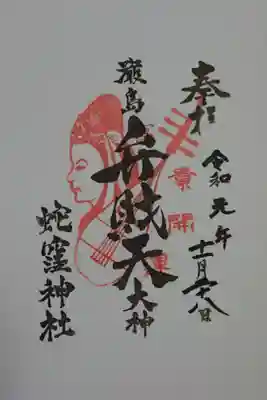 奉拝
令和元年
十一月二十八日
開運
厳島
弁財天
大神
蛇窪神社